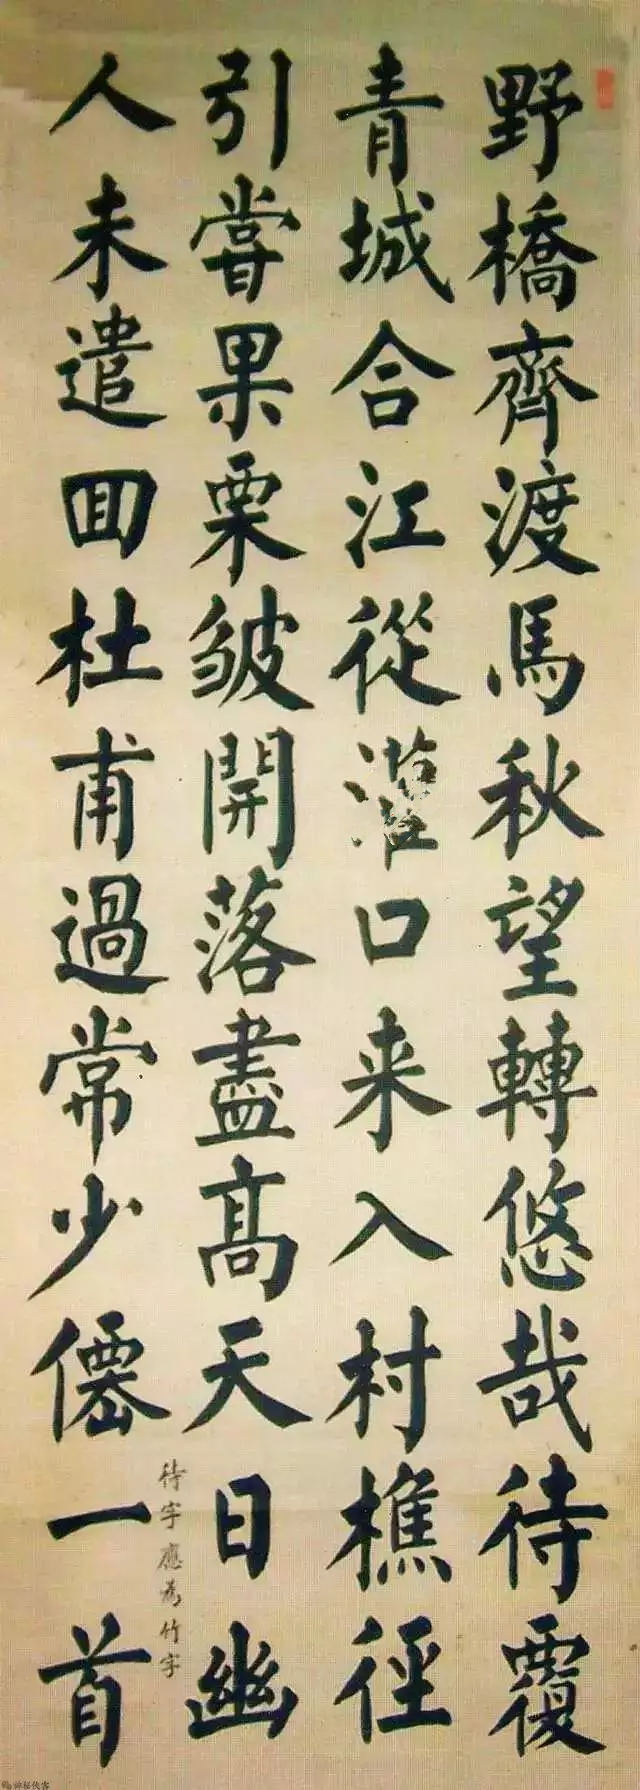 野橋齊渡馬秋望轉悠哉待覆
青城合江從灌口来入村樵徑
引嘗果栗皴開落盡高天日幽
人未遣回杜甫過常少僊一首
待字應為竹字
神秘侠客